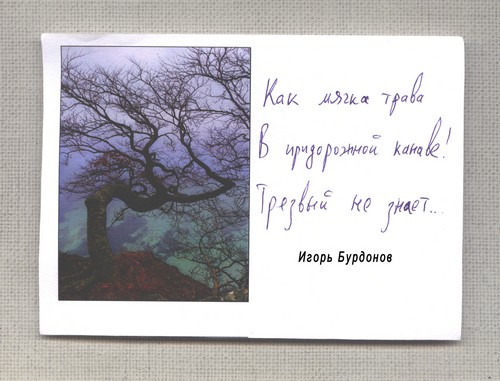 Как мягка трава
В придорожной канаве!
Трезвый не знает...
Игорь Бурдонов